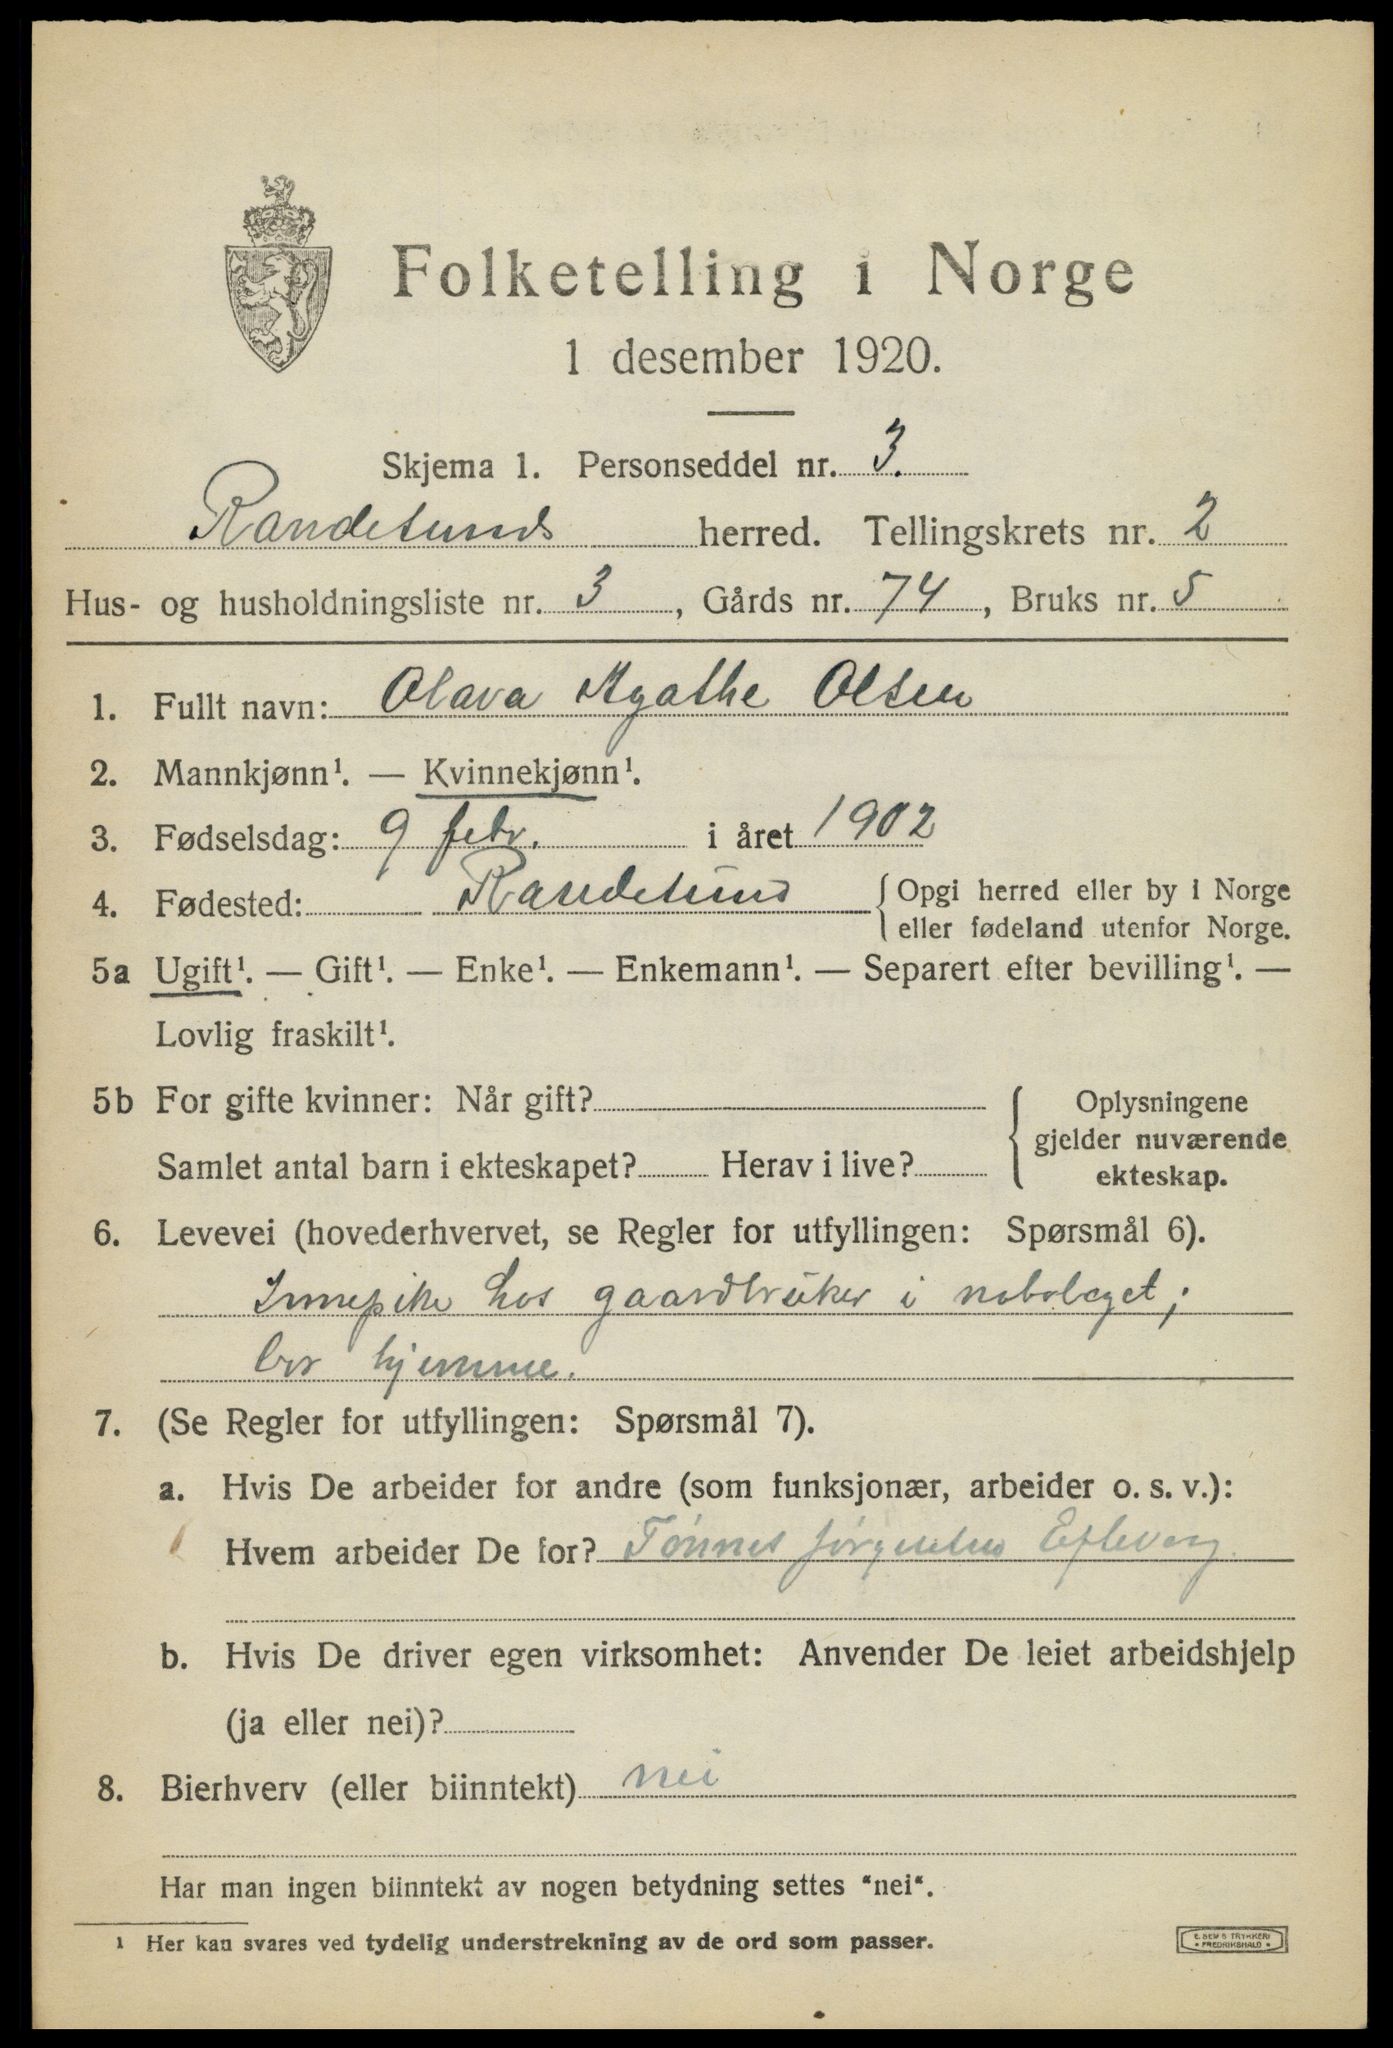 Folketelling i Norge
1 desember 1920.
Skjema 1. Personseddel nr. 3.
Randesunds herred. Tellingskrets nr. 2
Hus- og husholdningsliste nr. 3, Gårds nr. 74, Bruks nr. 5
1. Fullt navn: Olava Agathe Olsen
2. Mannkjønn¹. — Kvinnekjønn¹.
3. Fødselsdag: 9 febr. i året 1902
4. Fødested: Randesund { Opgi herred eller by i Norge
eller fødeland utenfor Norge.
5a Ugift¹. — Gift¹. — Enke¹. — Enkemann¹. — Separert efter bevilling¹. —
Lovlig fraskilt¹.
5b For gifte kvinner: Når gift? { Oplysningene
gjelder nuværende
Samlet antal barn i ekteskapet? Herav i live?
ekteskap.
6. Levevei (hovederhvervet, se Regler for utfyllingen: Spørsmål 6).
Innepike hos gaardbruker i nabolaget;
bor hjemme.
7. (Se Regler for utfyllingen: Spørsmål 7).
a. Hvis De arbeider for andre (som funksjonær, arbeider o. s. v.):
Hvem arbeider De for? Tönnes Jörgensen
b. Hvis De driver egen virksomhet: Anvender De leiet arbeidshjelp
(ja eller nei)?
8. Bierhverv (eller biinntekt) nei
Har man ingen biinntekt av nogen betydning settes "nei".
¹ Her kan svares ved tydelig understrekning av de ord som passer.
E. SEM'S TRYKKERI
• FREDRIKSHALD •